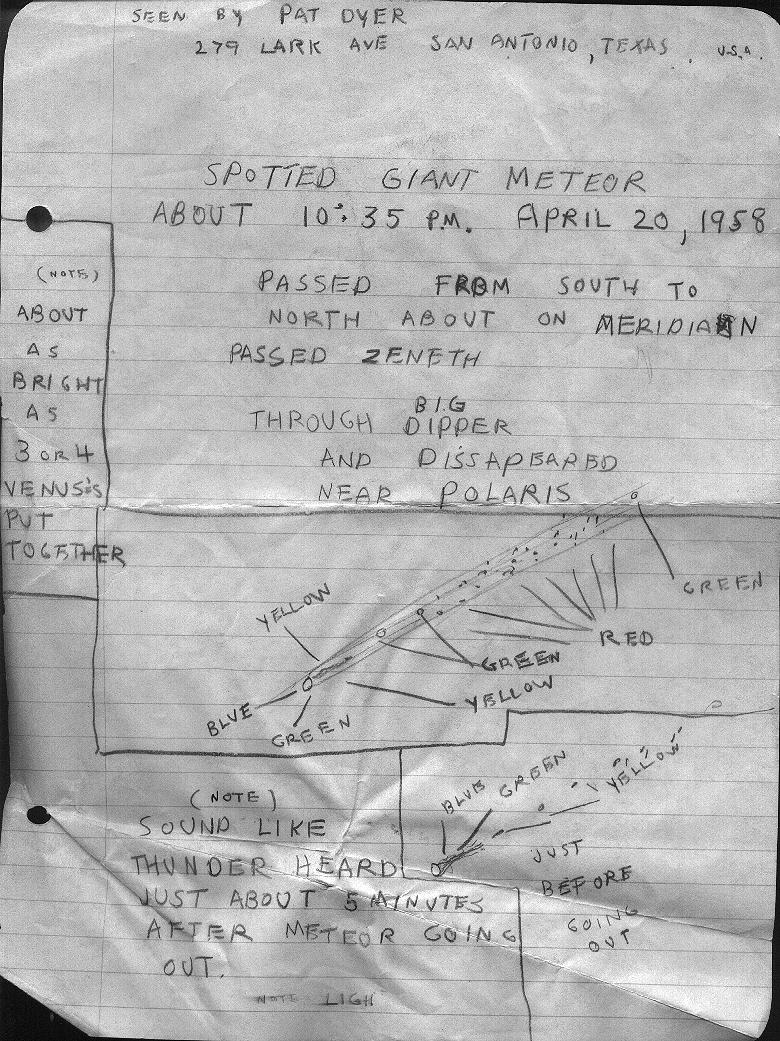 SEEN BY PAT DYER
279 LARK AVE SAN ANTONIO, TEXAS. U.S.A.
SPOTTED GIANT METEOR
ABOUT 10:35 P.M. APRIL 20, 1958
PASSED FROM SOUTH TO
NORTH ABOUT ON MERIDIAN
PASSED ZENETH
THROUGH BIG DIPPER
AND DISSAPEARED
NEAR POLARIS
(NOTE)
ABOUT
AS
BRIGHT
AS
3 OR 4
VENUS'S
PUT
TOGETHER
YELLOW
GREEN
RED
GREEN
YELLOW
BLUE
GREEN
(NOTE)
SOUND LIKE
THUNDER HEARD
JUST ABOUT 5 MINUTES
AFTER METEOR GOING
OUT.
BLUE
GREEN
YELLOW
JUST
BEFORE
GOING
OUT
NOTE LIGH